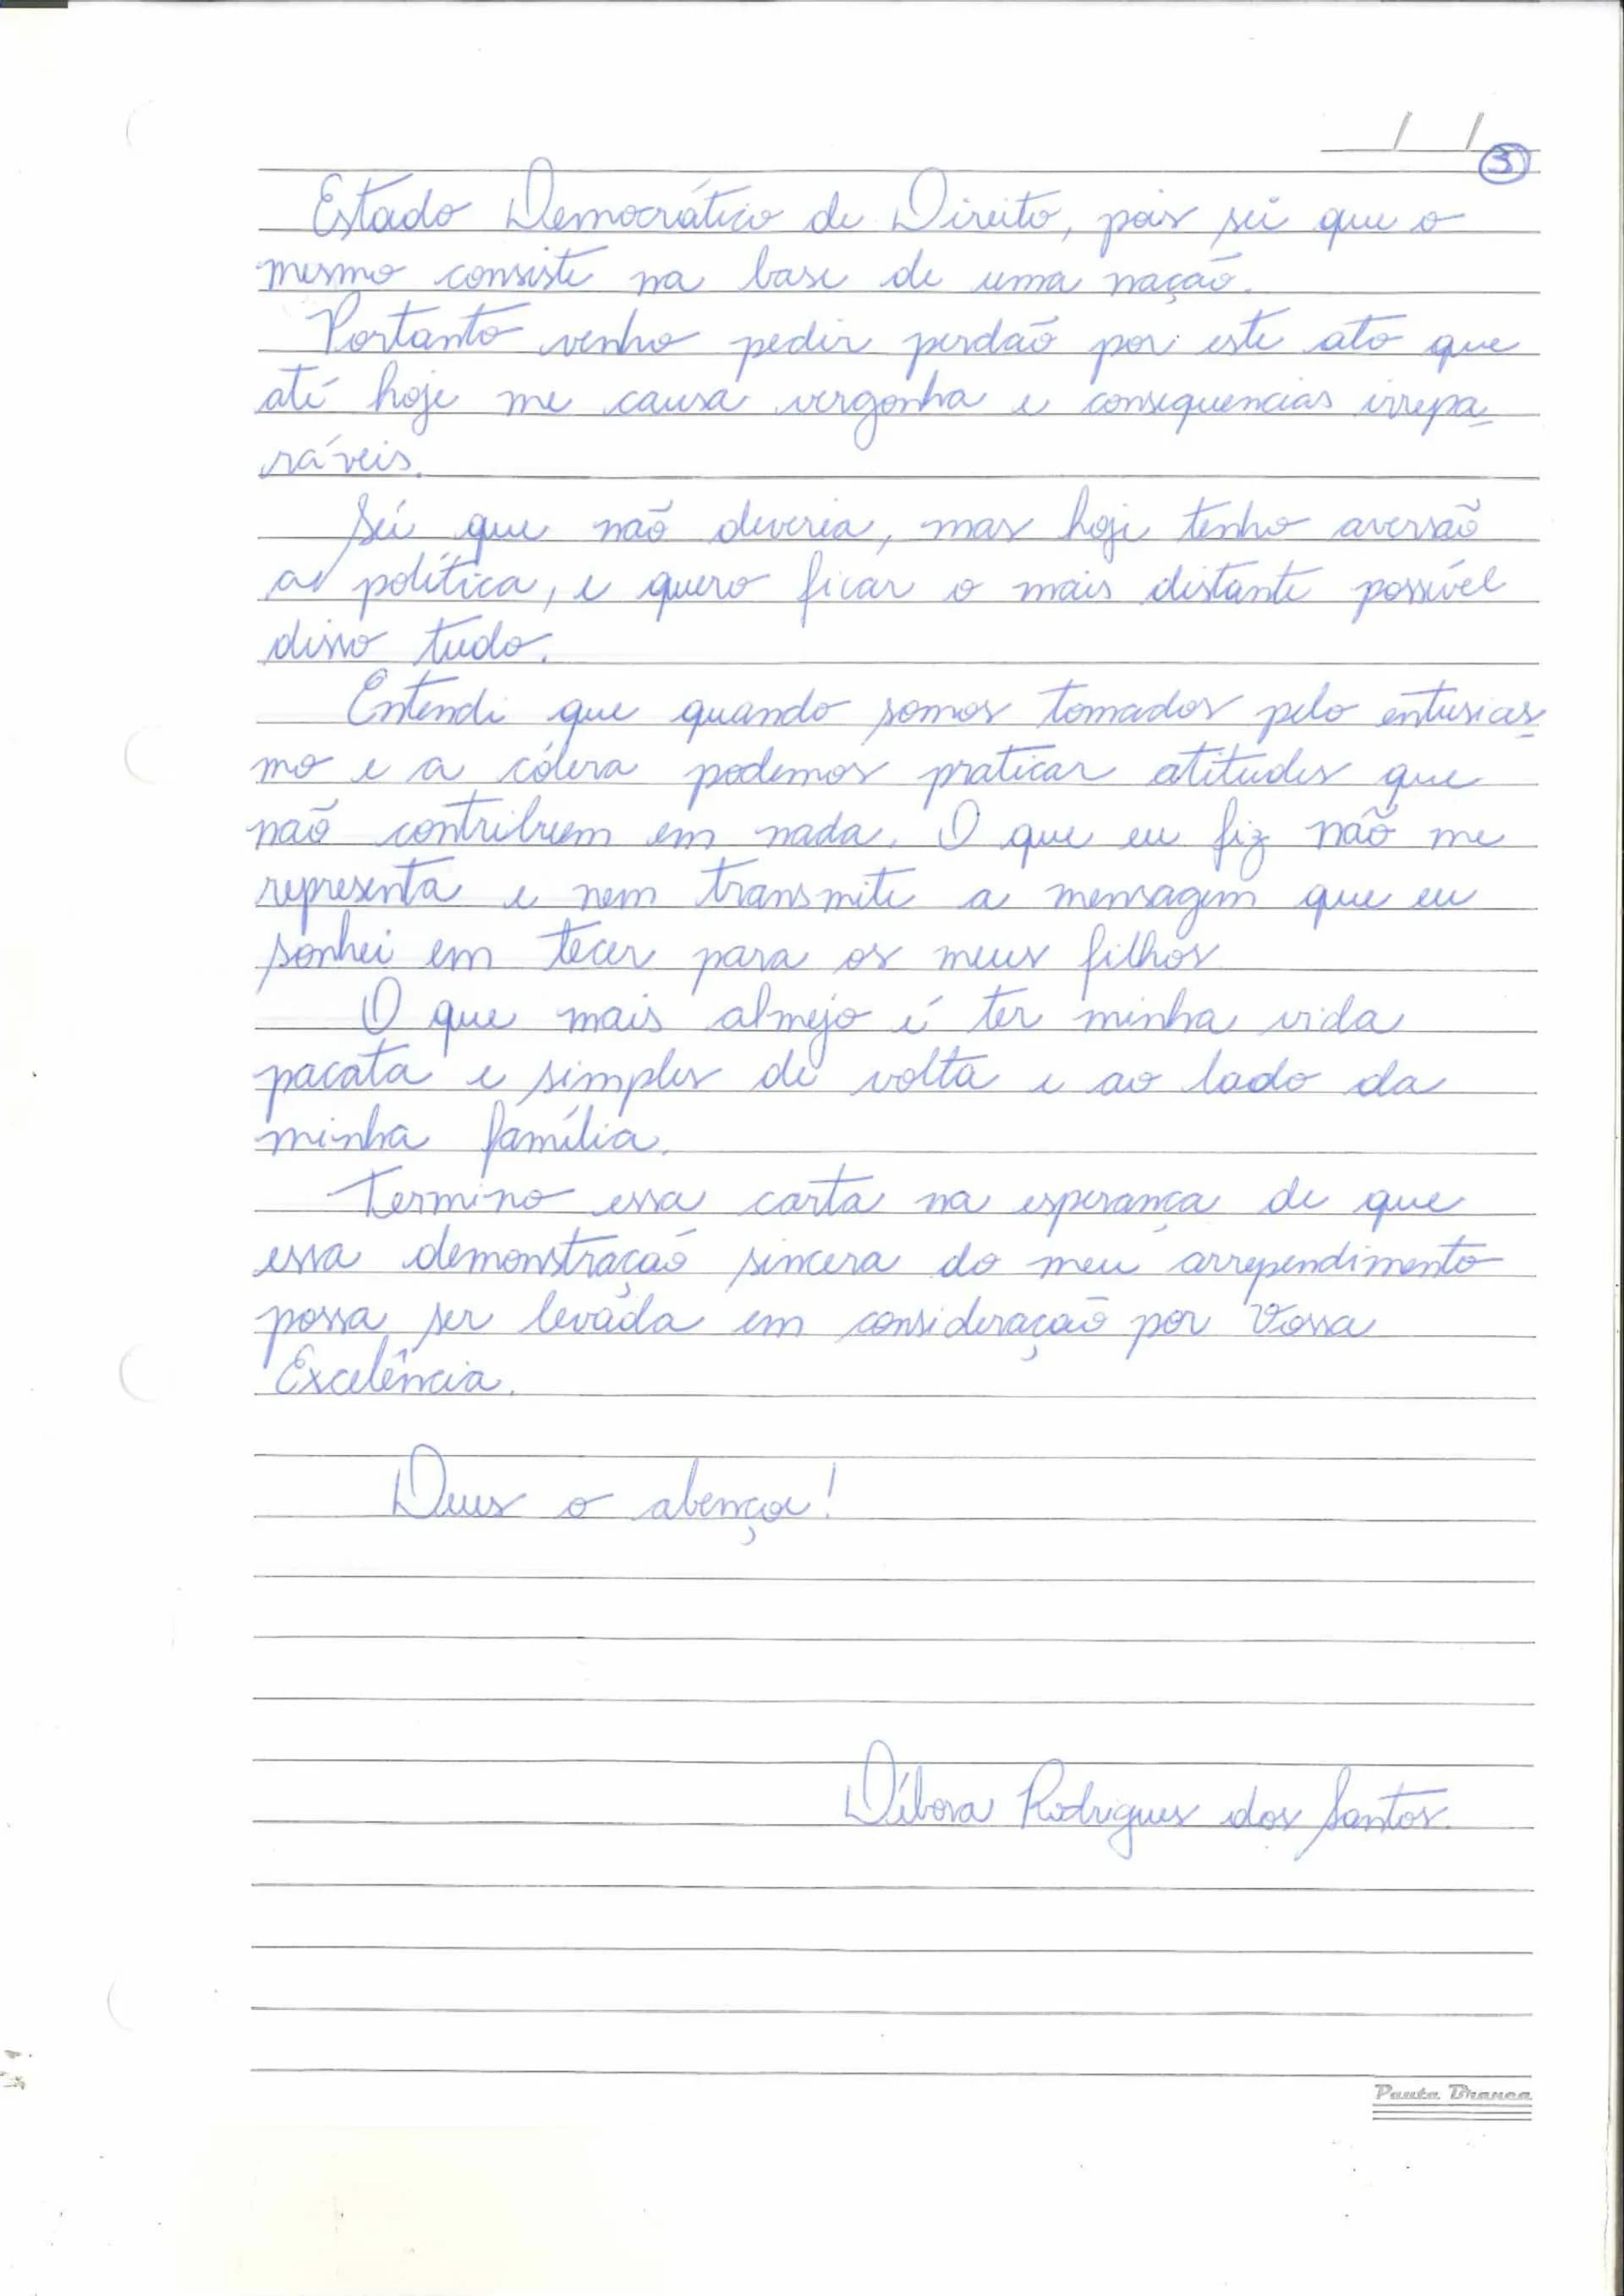 / /
3
Estado Democrático de Direito, pois sei que o
mesmo consiste na base de uma nação.
Portanto venho pedir perdão por este ato que
até hoje me causa vergonha e consequencias irrepa_
ráveis.
Sei que não deveria, mas hoje tenho aversão
a política, e quero ficar o mais distante possível
disso tudo.
Entendi que quando somos tomados pelo entusias_
mo e a cólera podemos praticar atitudes que
não contribuem em nada. O que eu fiz não me
representa e nem transmite a mensagem que eu
sonhei em tecer para os meus filhos
O que mais almejo é ter minha vida
pacata e simples de volta e ao lado da
minha família.
Termino essa carta na esperança de que
essa demonstração sincera do meu arrependimento
possa ser levada em consideração por Vossa
Excelência.
Deus o abençoe!
Débora Rodrigues dos Santos.
Pauta Branca